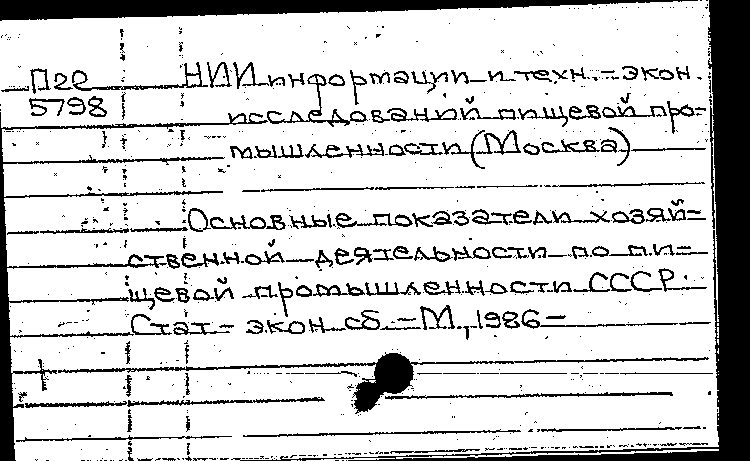 П2е НИИ информации и техн.-экон.
5798 исследований пищевой про=
мышленности (Москва)
Основные показатели хозяй=
ственной деятельности по пи=
щевой промышленности СССР:
Стат.- экон. сб. - М., 1986 -